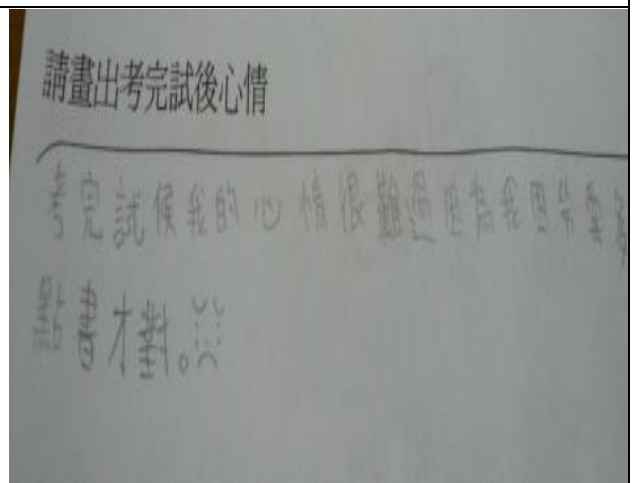 請畫出考完試後心情
考完試候我的心情很難過因為我因當要多
點書才對。